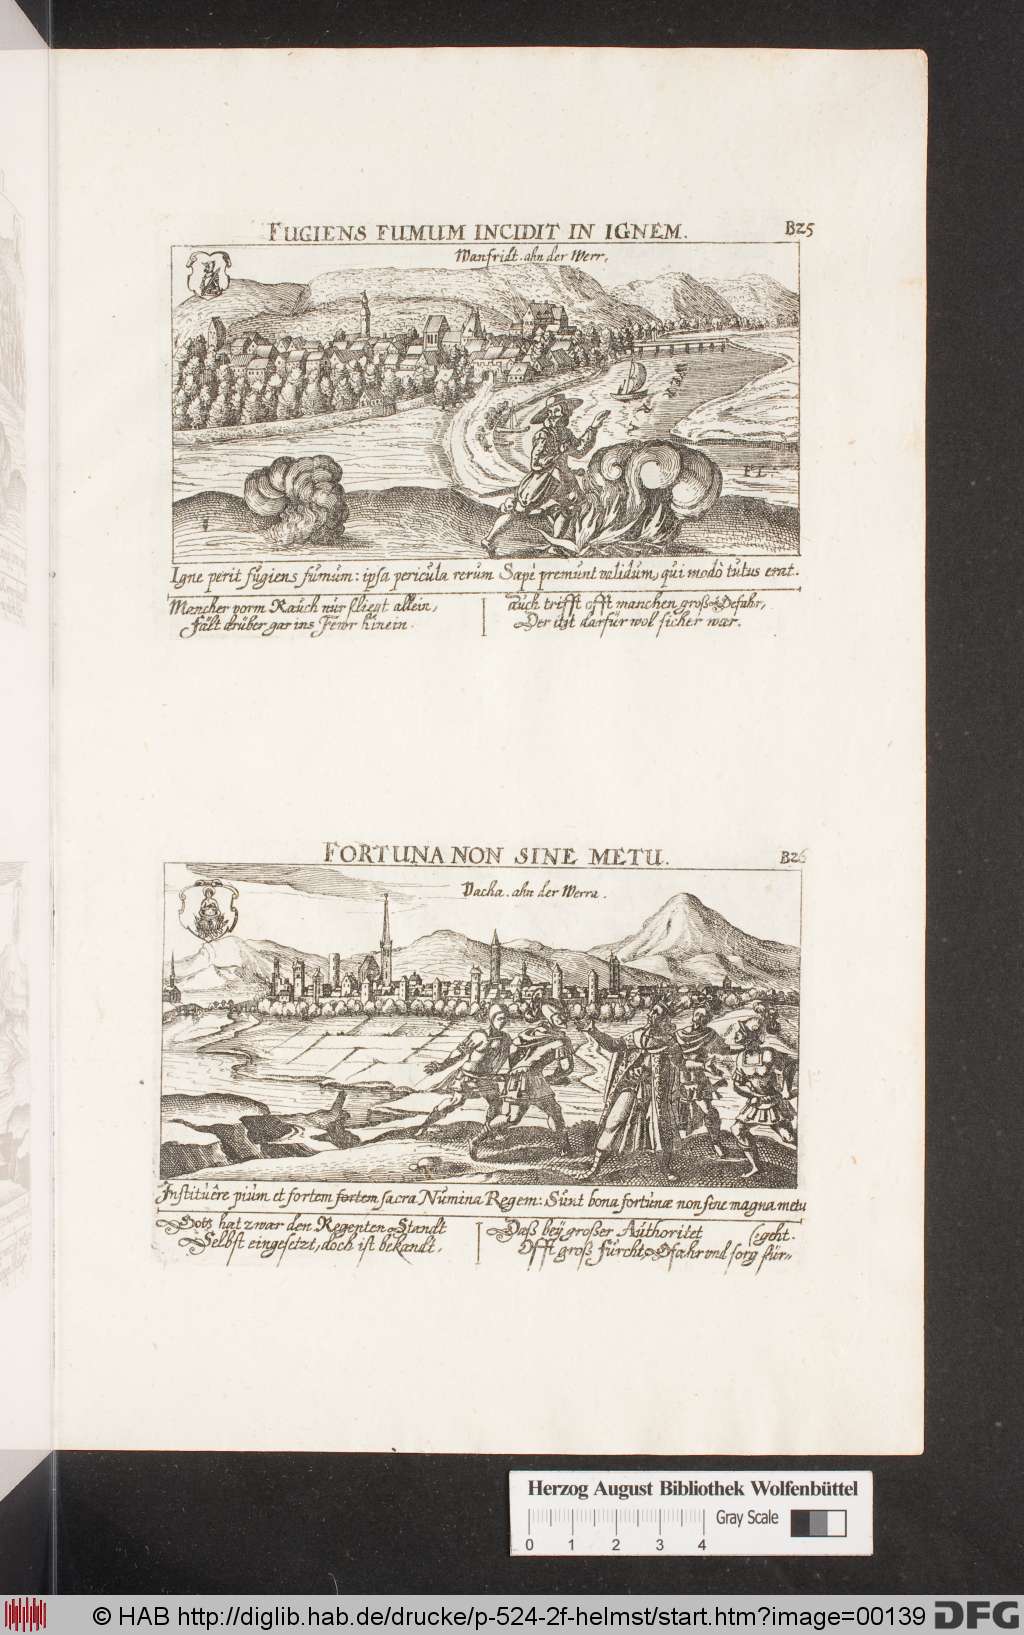 FUGIENS FUMUM INCIDIT IN IGNEM.
B25
Wanfridt. ahn der Werr.
WERRA
F L
Igne perit fugiens fumum: ipsa pericula rerum Sæpè premunt validum, qui modò tutus erat.
Mancher vorm Rauch nur fliegt allein,
Fält drüber gar ins Fewr hinein.
auch trifft offt manchen groß Gefahr,
Der itzt darfür wol sicher war.
FORTUNA NON SINE METU.
B26
Vacha. ahn der Werra.
Instituêre pium et fortem fortem sacra Numina Regem: Sunt bona fortunæ non sine magna metu
Gott hat zwar den Regenten Standt
Selbst eingesetzt, doch ist bekandt,
Daß beÿ großer Authoritet
(geht.
Offt groß furcht, Gfahr vnd sorg für--
Herzog August Bibliothek Wolfenbüttel
Gray Scale
0 1 2 3 4
© HAB http://diglib.hab.de/drucke/p-524-2f-helmst/start.htm?image=00139
DFG